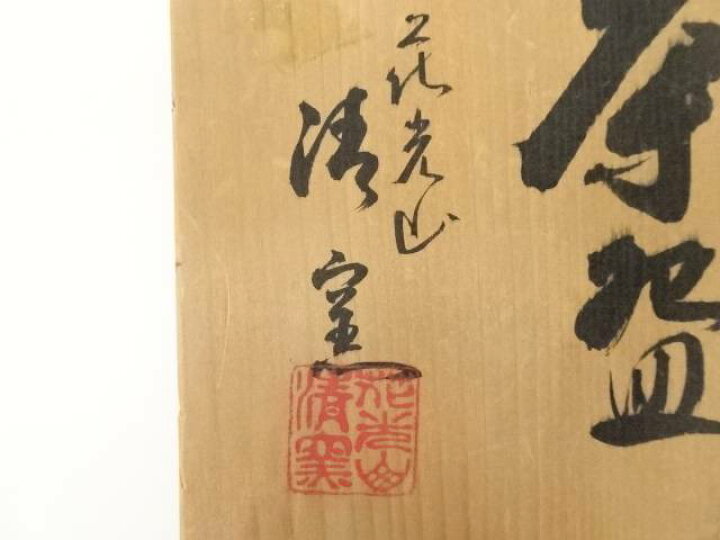 茶盌
花光山
清窯
花光山
清窯